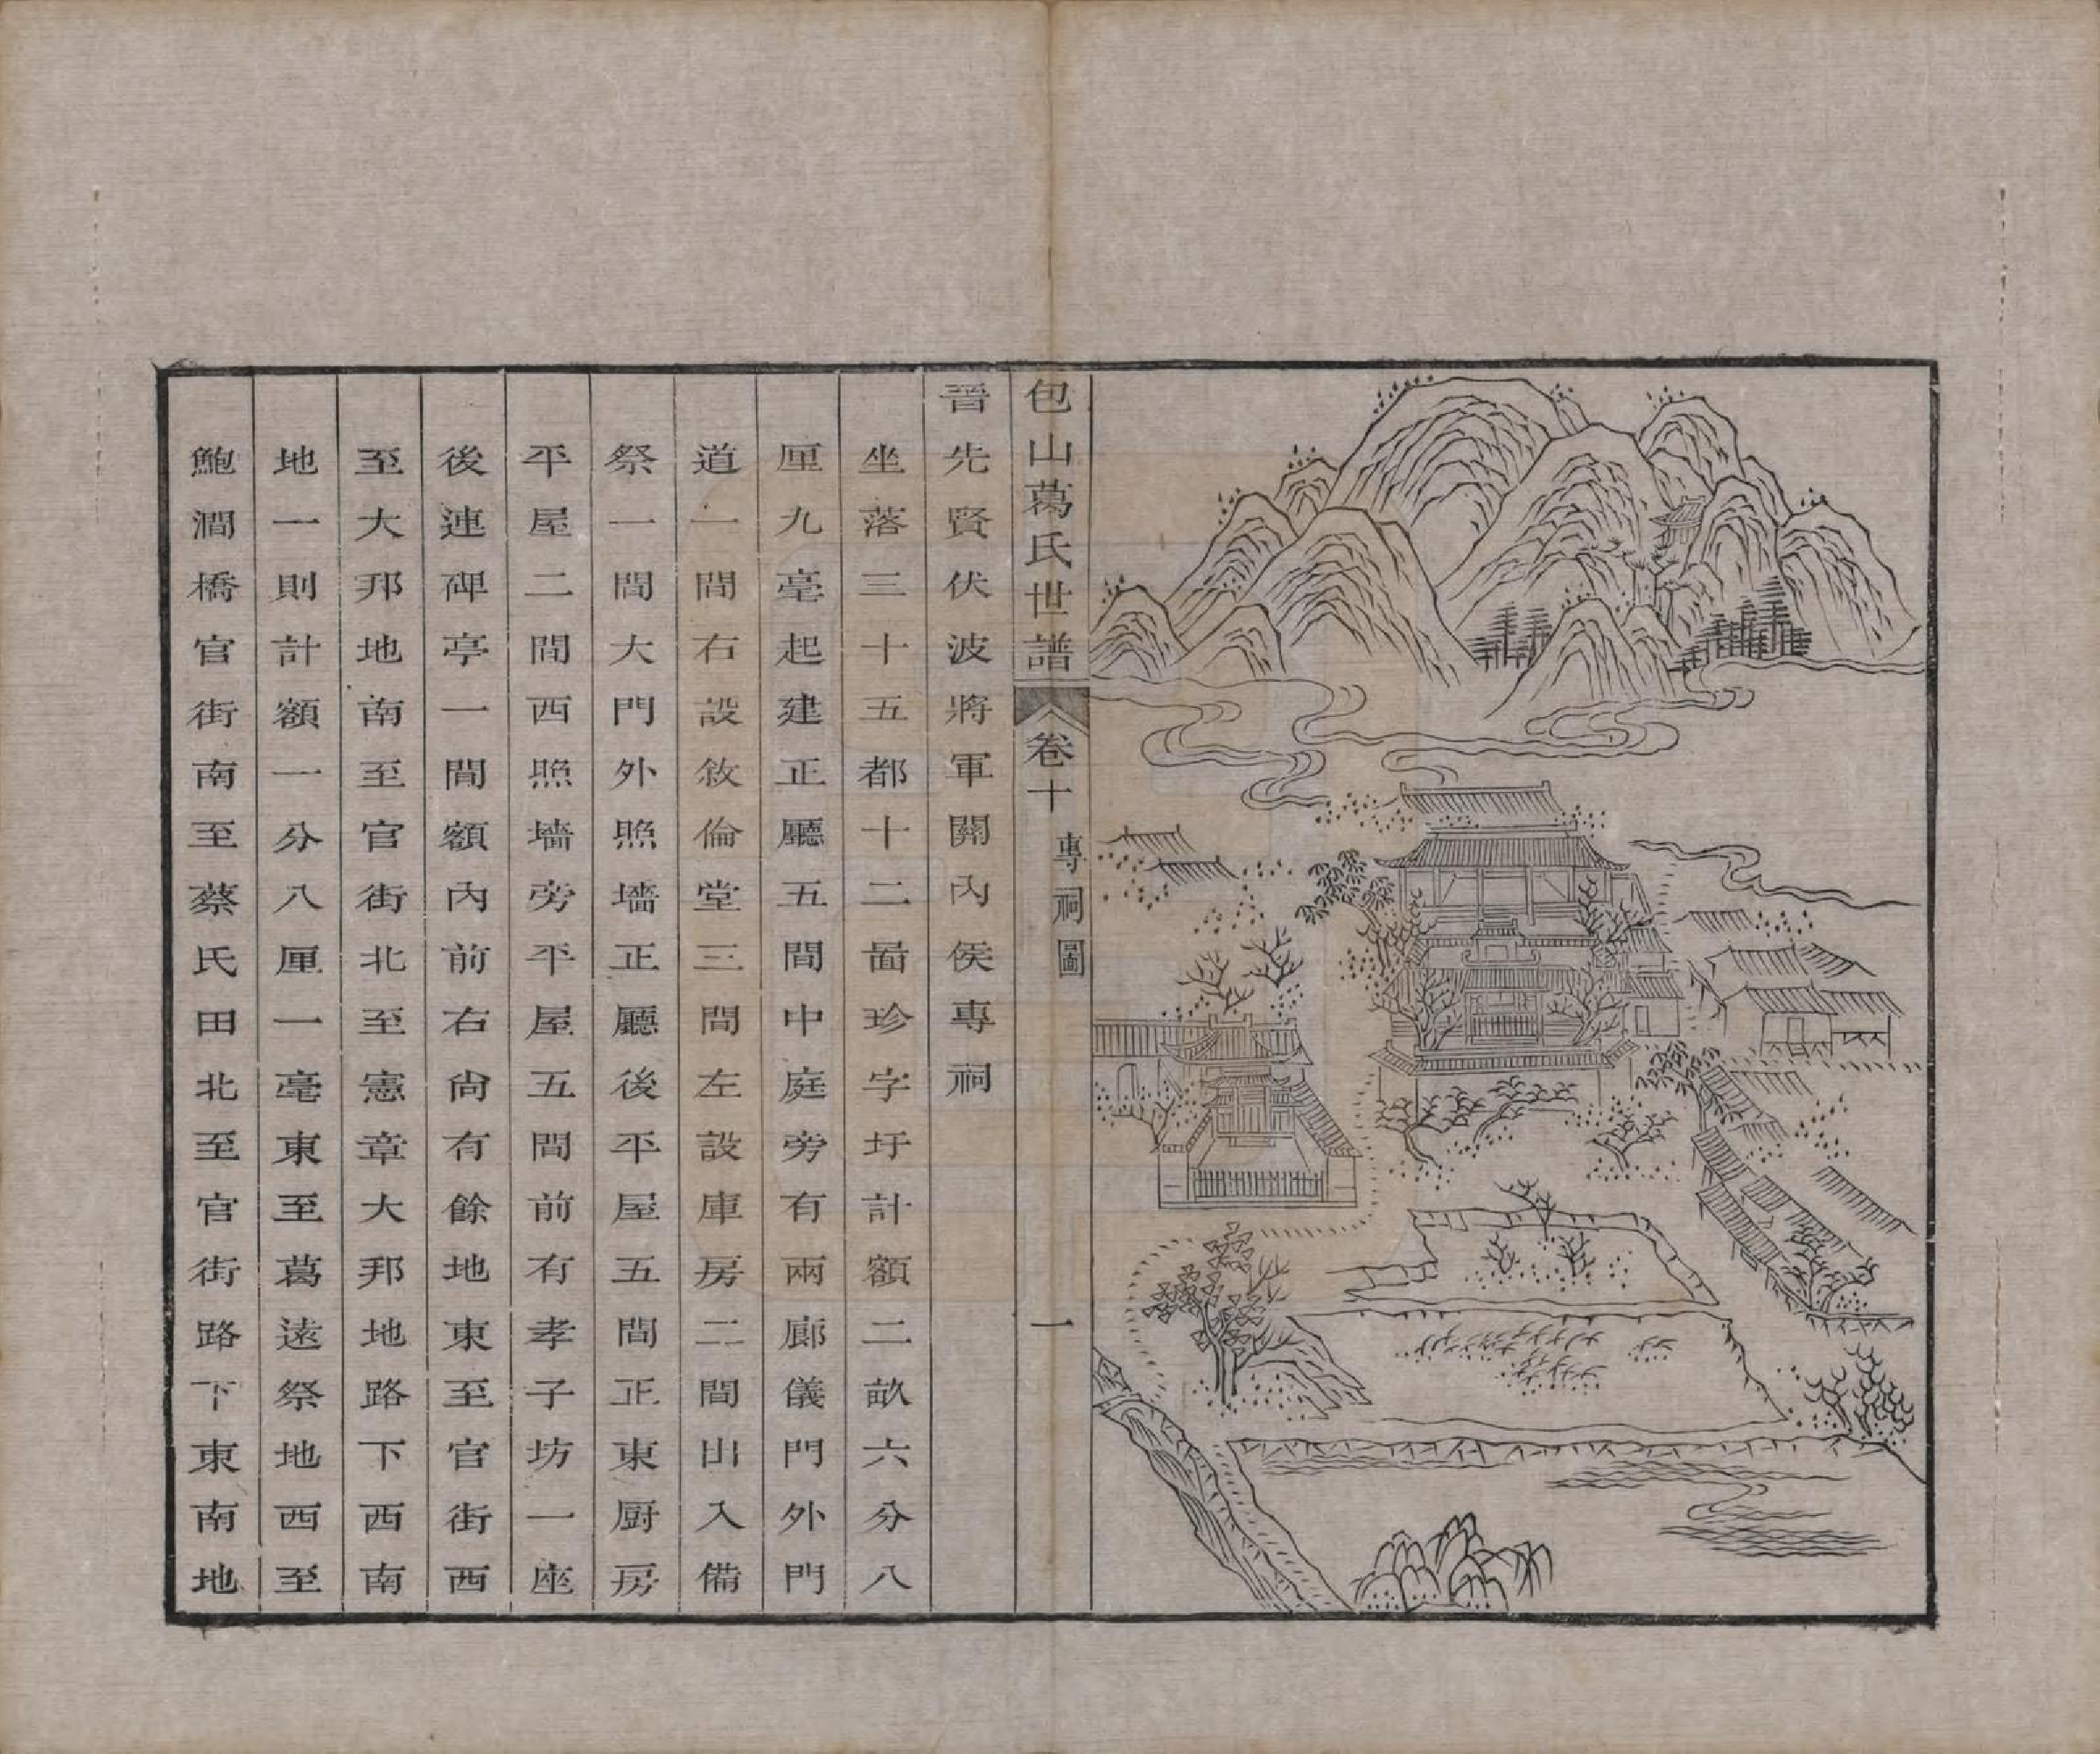 包山葛氏世譜
卷十
專祠圖
一
晉先賢伏波將軍關內侯專祠
坐落三十五都十二啚珍字圩計額二畝六分八
厘九毫起建正廳五間中庭旁有兩廊儀門外門
道一間右設敘倫堂三間左設庫房二間出入備
祭一間大門外照墻正廳後平屋五間正東厨房
平屋二間西照墻旁平屋五間前有孝子坊一座
後連碑亭一間額內前右尙有餘地東至官街西
至大邦地南至官街北至憲章大邦地路下西南
地一則計額一分八厘一毫東至葛遠祭地西至
鮑澗橋官街南至蔡氏田北至官街路下東南地